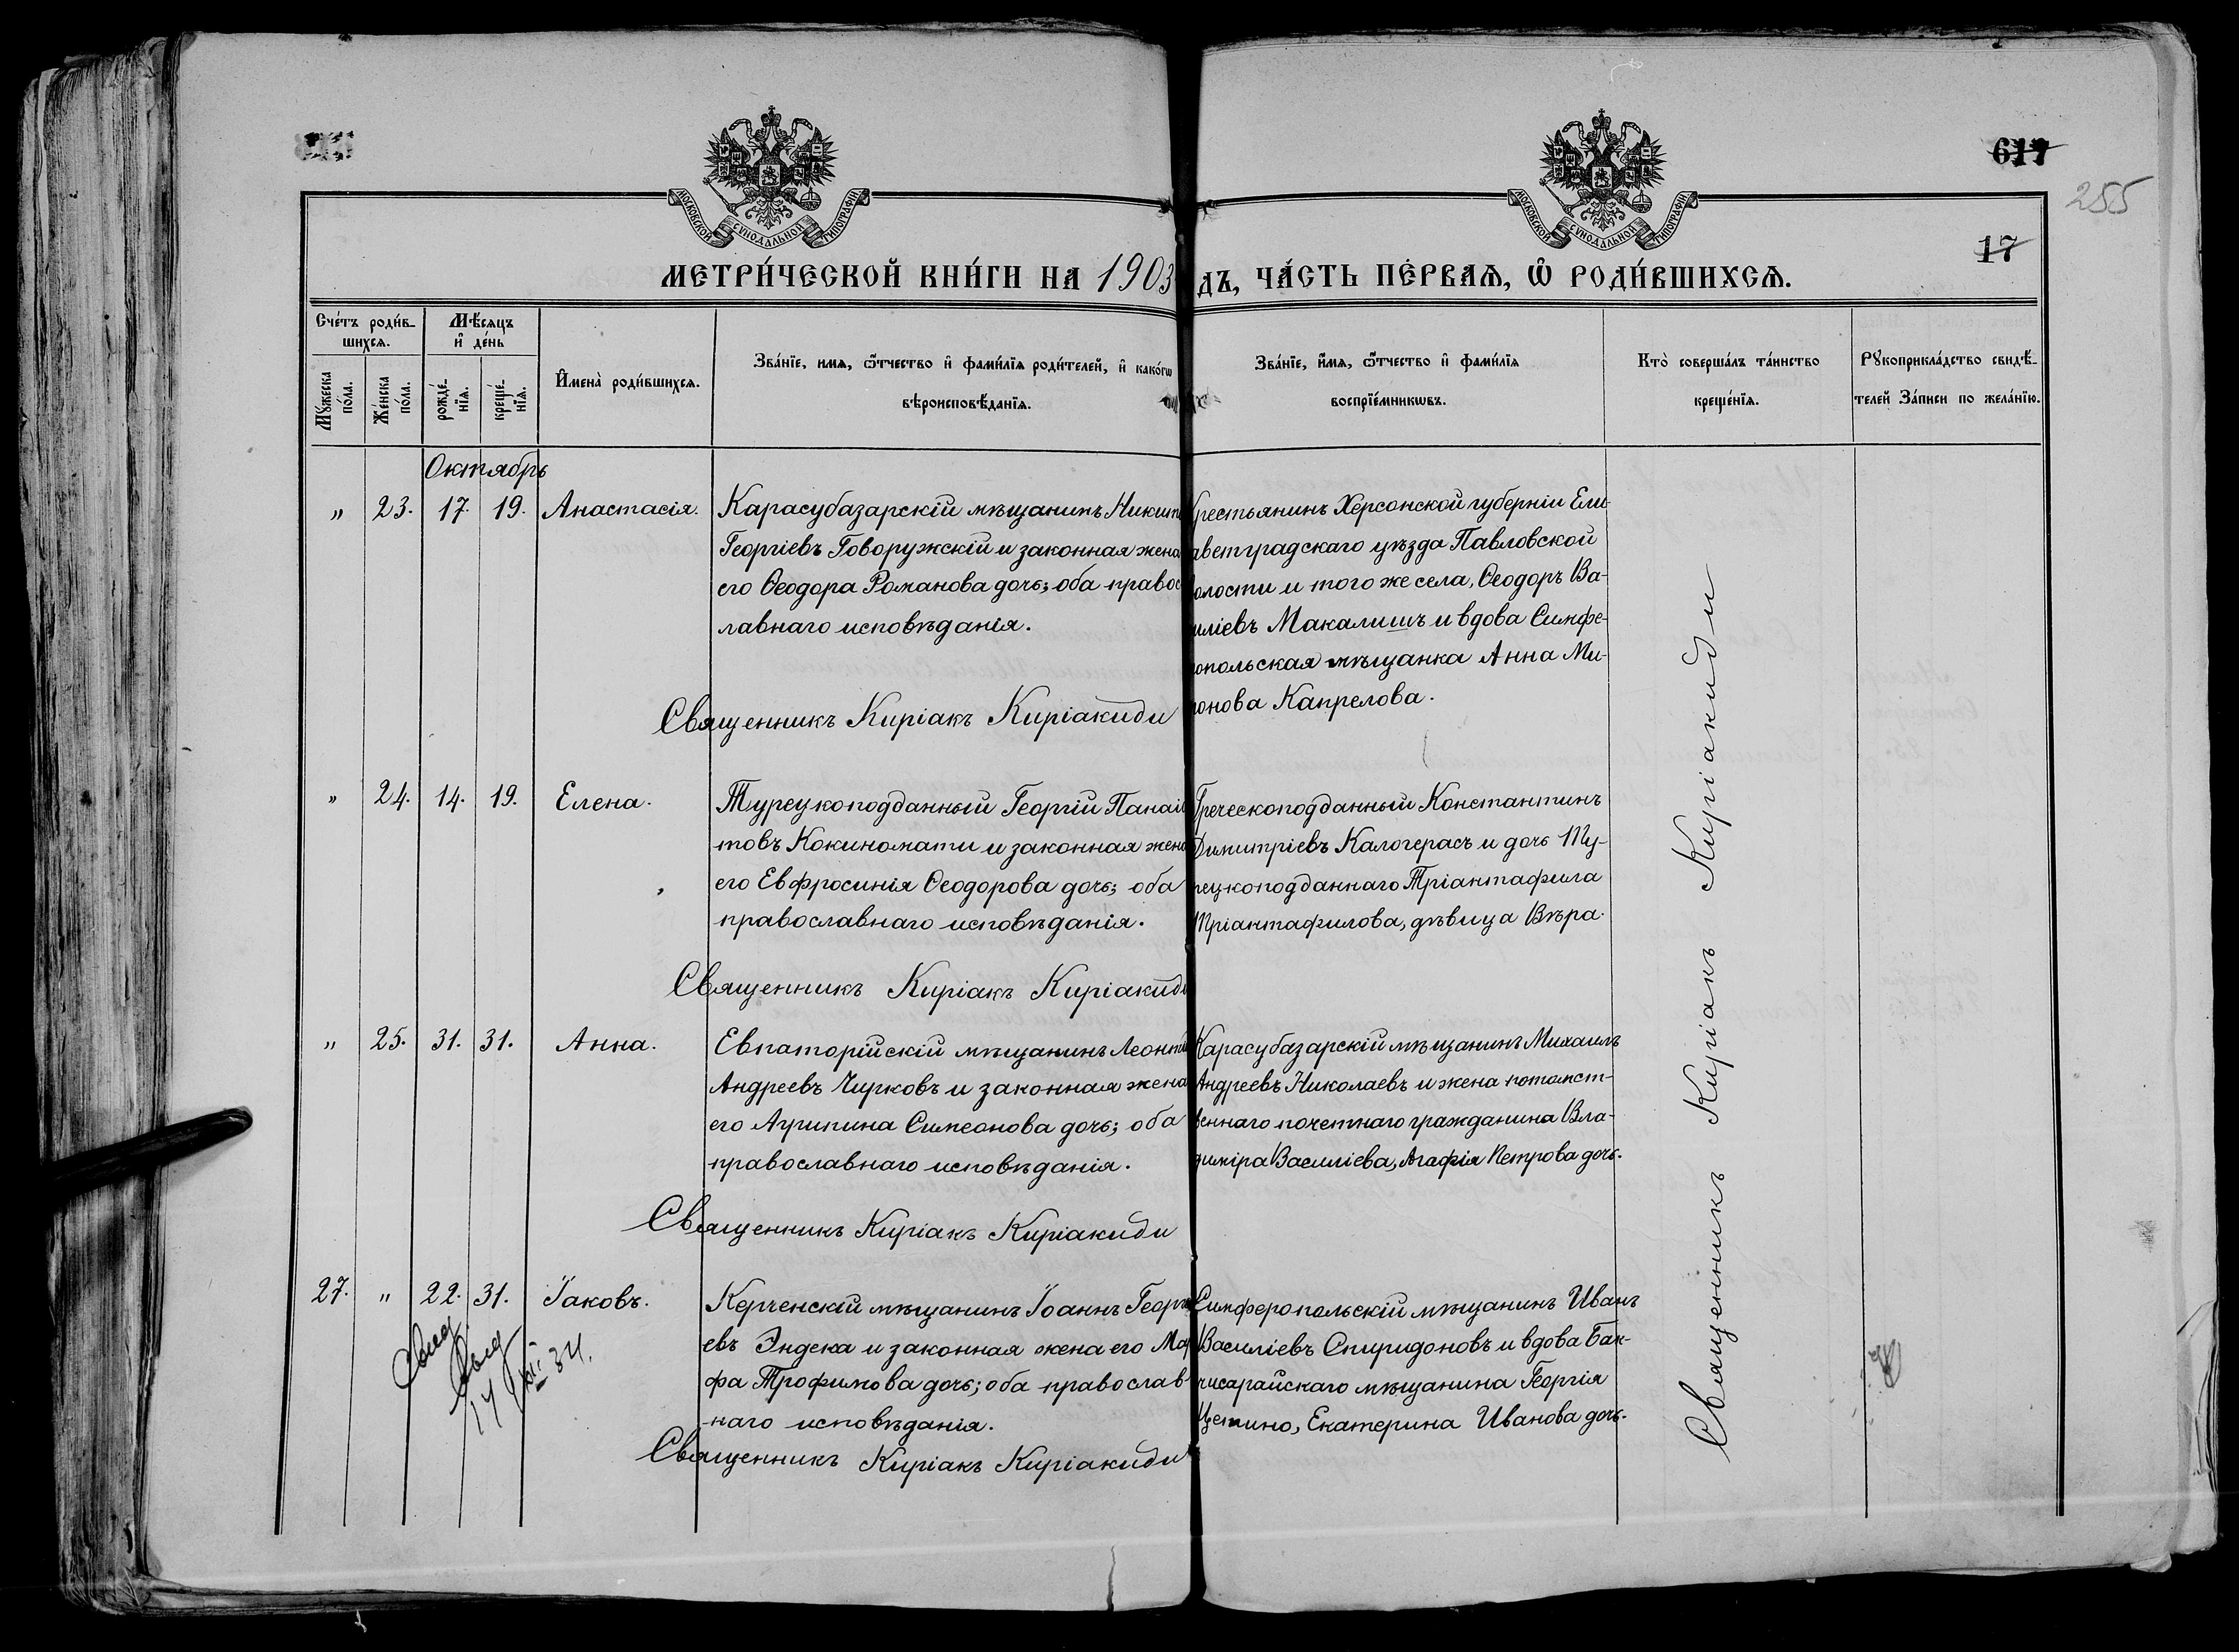 617
255
17
МОСКОВСКОЙ СѴНОДАЛЬНОЙ ТИПОГРАФІИ
МОСКОВСКОЙ СѴНОДАЛЬНОЙ ТИПОГРАФІИ
МЕТРИ́ЧЕСКОЙ КНИ́ГИ НА 1903 ДЪ, ЧА́СТЬ ПЕ́РВАѦ, Ѿ РОДИ́ВШИХСѦ.
Сче́тъ роди́в-
шихсѧ.
Мꙋ́жеска по́ла.
Же́нска по́ла.
Мѣ́сѧцъ
и҆ де́нь
рожде́-
нїѧ.
креще́-
нїѧ.
И҆мена̀ роди́вшихсѧ.
Зва́нїе, имѧ, ѻ҆́тчество и҆ фами́лїѧ роди́телей, и҆ како́гѡ
вѣроисповѣ́данїѧ.
Зва́нїе, и҆́мѧ, ѻ҆́тчество и҆ фами́лїѧ
воспрїе́мникѡвъ.
Кто̀ соверша́лъ та́инство
креще́нїѧ.
Рꙋкоприкла́дство свидѣ́-
телей За́писи по жела́нїю.
Октябрь
" 23. 17. 19. Анастасія.
Карасубазарскій мѣщанинъ Никита
Георгіевъ Говоружскій и законная жена
его Ѳеодора Романова дочь; оба правос
лавнаго исповѣданія.
Крестьянинъ Херсонской губерніи Ели-
аветградскаго уѣзда Павловской
олости и того же села, Ѳеодоръ Ва-
иліевъ Макалишъ и вдова Симфе-
опольская мѣщанка Анна Ми-
онова Капрелова.
Священникъ Киріакъ Киріакиди
" 24. 14. 19. Елена.
Турецкоподданный Георгій Панаіо
товъ Кокиномати и законная жена
его Евфросинія Ѳеодорова дочь; оба
православнаго исповѣданія.
Греческоподданный Константинъ
Димитріевъ Калогерасъ и дочь Ту-
рецкоподданнаго Тріантафила
Тріантафилова, дѣвица Вѣра.
Священникъ Киріакъ Киріакиди
" 25. 31. 31. Анна.
Евпаторійскій мѣщанинъ Леонтій
Андреевъ Чирковъ и законная жена
его Агрипина Симеонова дочь; оба
православнаго исповѣданія.
Карасубазарскій мѣщанинъ Михаилъ
Андреевъ Николаевъ и жена потомст-
веннаго почетнаго гражданина Вла-
диміра Василіева, Агафія Петрова дочь.
Священникъ Киріакъ Киріакиди
27. " 22. 31. Іаковъ.
Керченскій мѣщанинъ Іоаннъ Георгі
евъ Эндека и законная жена его Мар
фа Трофимова дочь; оба православ-
наго исповѣданія.
Симферопольскій мѣщанинъ Иванъ
Василіевъ Спиридоновъ и вдова Бах-
чисарайскаго мѣщанина Георгія
Цемино, Екатерина Иванова дочь.
Священникъ Киріакъ Киріакиди
Священникъ Киріакъ Киріакиди